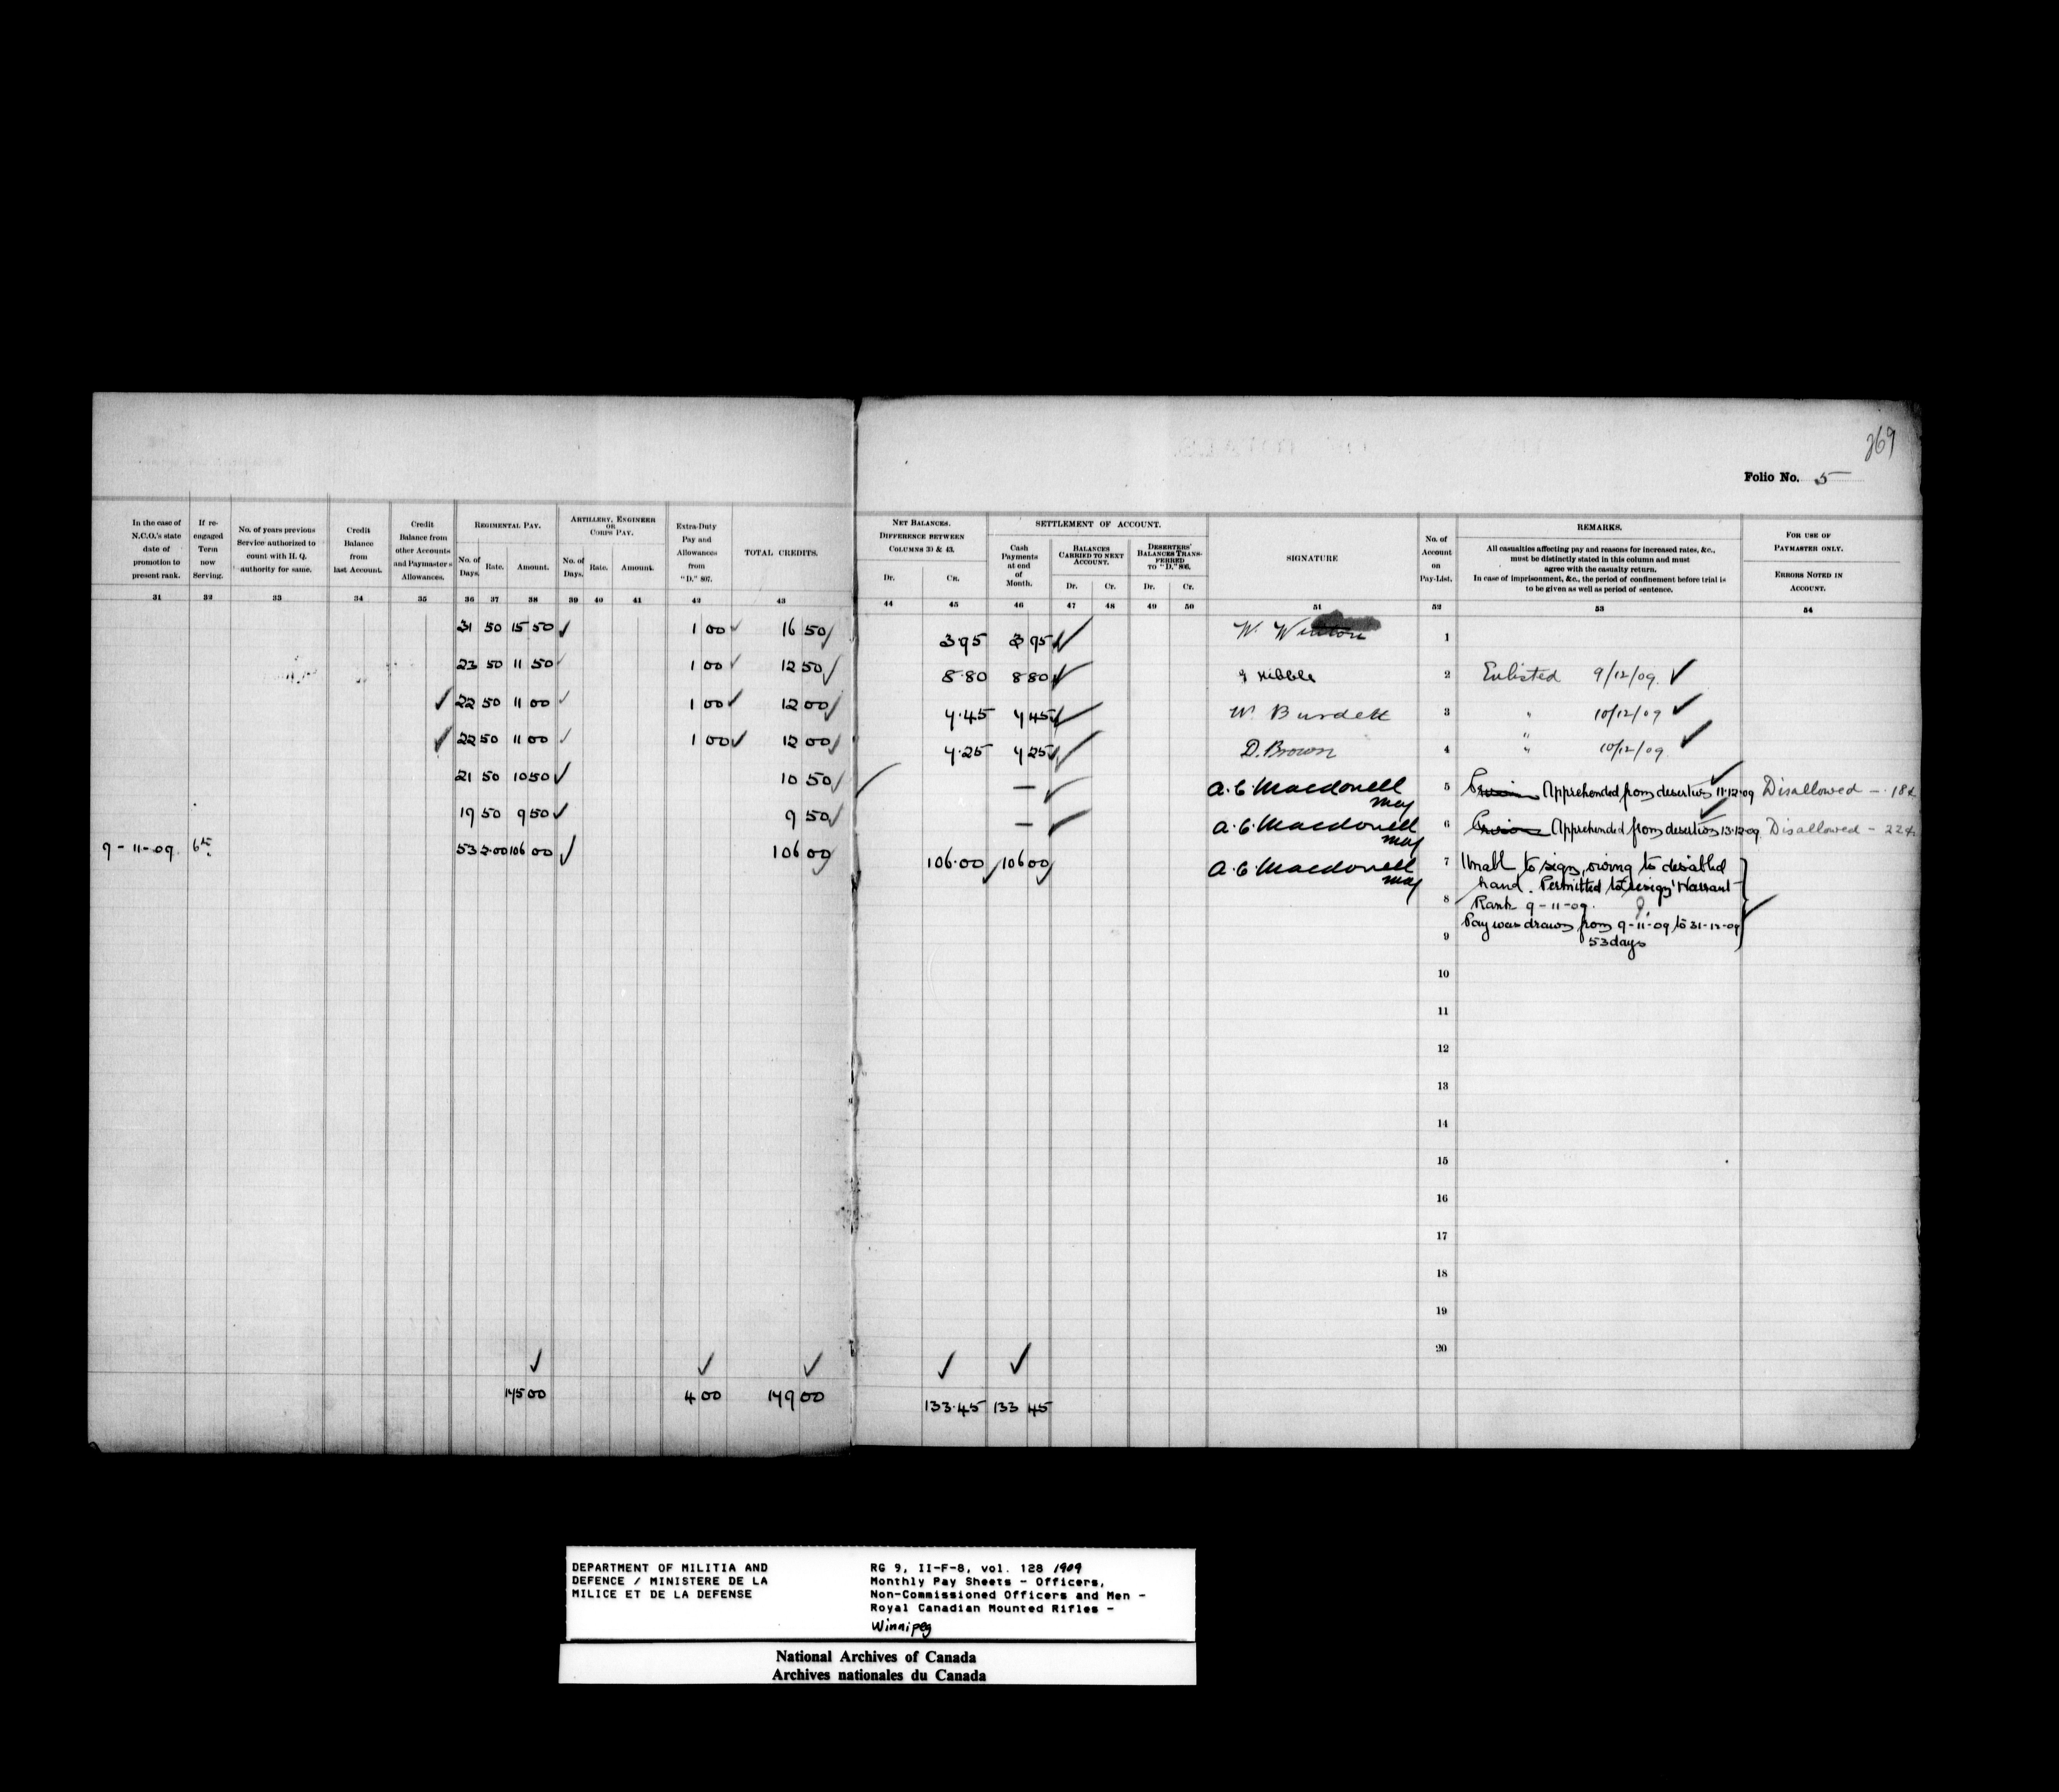 369
Folio No. 5
In the case of N.C.O.'s state date of promotion to present rank.
If re-engaged Term now Serving.
No. of years previous Service authorized to count with H. Q. authority for same.
Credit Balance from last Account.
Credit Balance from other Accounts and Paymaster's Allowances.
REGIMENTAL PAY.
No. of Days. Rate. Amount.
ARTILLERY, ENGINEER OR CORPS PAY.
No. of Days. Rate. Amount.
Extra-Duty Pay and Allowances from "D." 807.
TOTAL CREDITS.
NET BALANCES. DIFFERENCE BETWEEN COLUMNS 30 & 43.
Dr. Cr.
SETTLEMENT OF ACCOUNT.
Cash Payments at end of Month.
BALANCES CARRIED TO NEXT ACCOUNT.
Dr. Cr.
DESERTERS' BALANCES TRANSFERRED TO "D." 806.
Dr. Cr.
SIGNATURE
No. of Account on Pay-List.
REMARKS.
All casualties affecting pay and reasons for increased rates, &c., must be distinctly stated in this column and must agree with the casualty return.
In case of imprisonment, &c., the period of confinement before trial is to be given as well as period of sentence.
FOR USE OF PAYMASTER ONLY.
ERRORS NOTED IN ACCOUNT.
31 32 33 34 35 36 37 38 39 40 41 42 43 44 45 46 47 48 49 50 51 52 53 54
31 50 15 50 ✓ 1 00 ✓ 16 50 ✓ 3 95 3 95 ✓ W. 1
23 50 11 50 ✓ 1 00 ✓ 12 50 ✓ 8.80 8 80 ✓ 2 Enlisted 9/12/09. ✓
✓ 22 50 11 00 ✓ 1 00 ✓ 12 00 ✓ 7.45 7 45 ✓ W. Burdett 3 " 10/12/09 ✓
✓ 22 50 11 00 ✓ 1 00 ✓ 12 00 ✓ 7.25 7 25 ✓ D. Brown 4 " 10/12/09. ✓
21 50 10 50 ✓ 10 50 ✓ — ✓ A. C. Macdonell Maj 5 Apprehended from desertion 11-12-09 Disallowed - .18
19 50 9 50 ✓ 9 50 ✓ — ✓ A. C. Macdonell Maj 6 Apprehended from desertion 13-12-09. Disallowed - 22
9-11-09. 6th. 53 2.00 106 00 ✓ 106 00 ✓ 106.00 106 00 ✓ A. C. Macdonell Maj 7 Unable to sign, owing to disabled
hand. Permitted to resign Warrant
8 Rank 9-11-09.
Pay was drawn from 9-11-09 to 31-12-09
9 53 days
10
11
12
13
14
15
16
17
18
19
20
✓ ✓ ✓ ✓ ✓
175 00 4 00 179 00 133.45 133 45
DEPARTMENT OF MILITIA AND
DEFENCE / MINISTERE DE LA
MILICE ET DE LA DEFENSE
RG 9, II-F-8, vol. 128 1909
Monthly Pay Sheets - Officers,
Non-Commissioned Officers and Men -
Royal Canadian Mounted Rifles -
Winnipeg
National Archives of Canada
Archives nationales du Canada